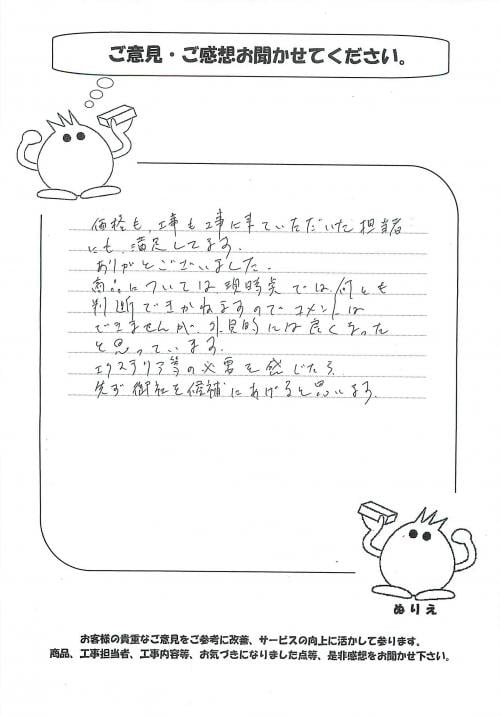 ご意見・ご感想お聞かせてください。
価格も、工事も工事に来ていただいた担当者
にも、満足してます。
ありがとございました。
商品については現時点では何とも
判断できかねますのでコメントは
できませんが、外見的には良くなった
と思っています。
エクステリア等の必要を感じたら
先ず御社を候補にあげると思います。
ぬりえ
お客様の貴重なご意見をご参考に改善、サービスの向上に活かして参ります。
商品、工事担当者、工事内容等、お気づきになりました点等、是非感想をお聞かせ下さい。